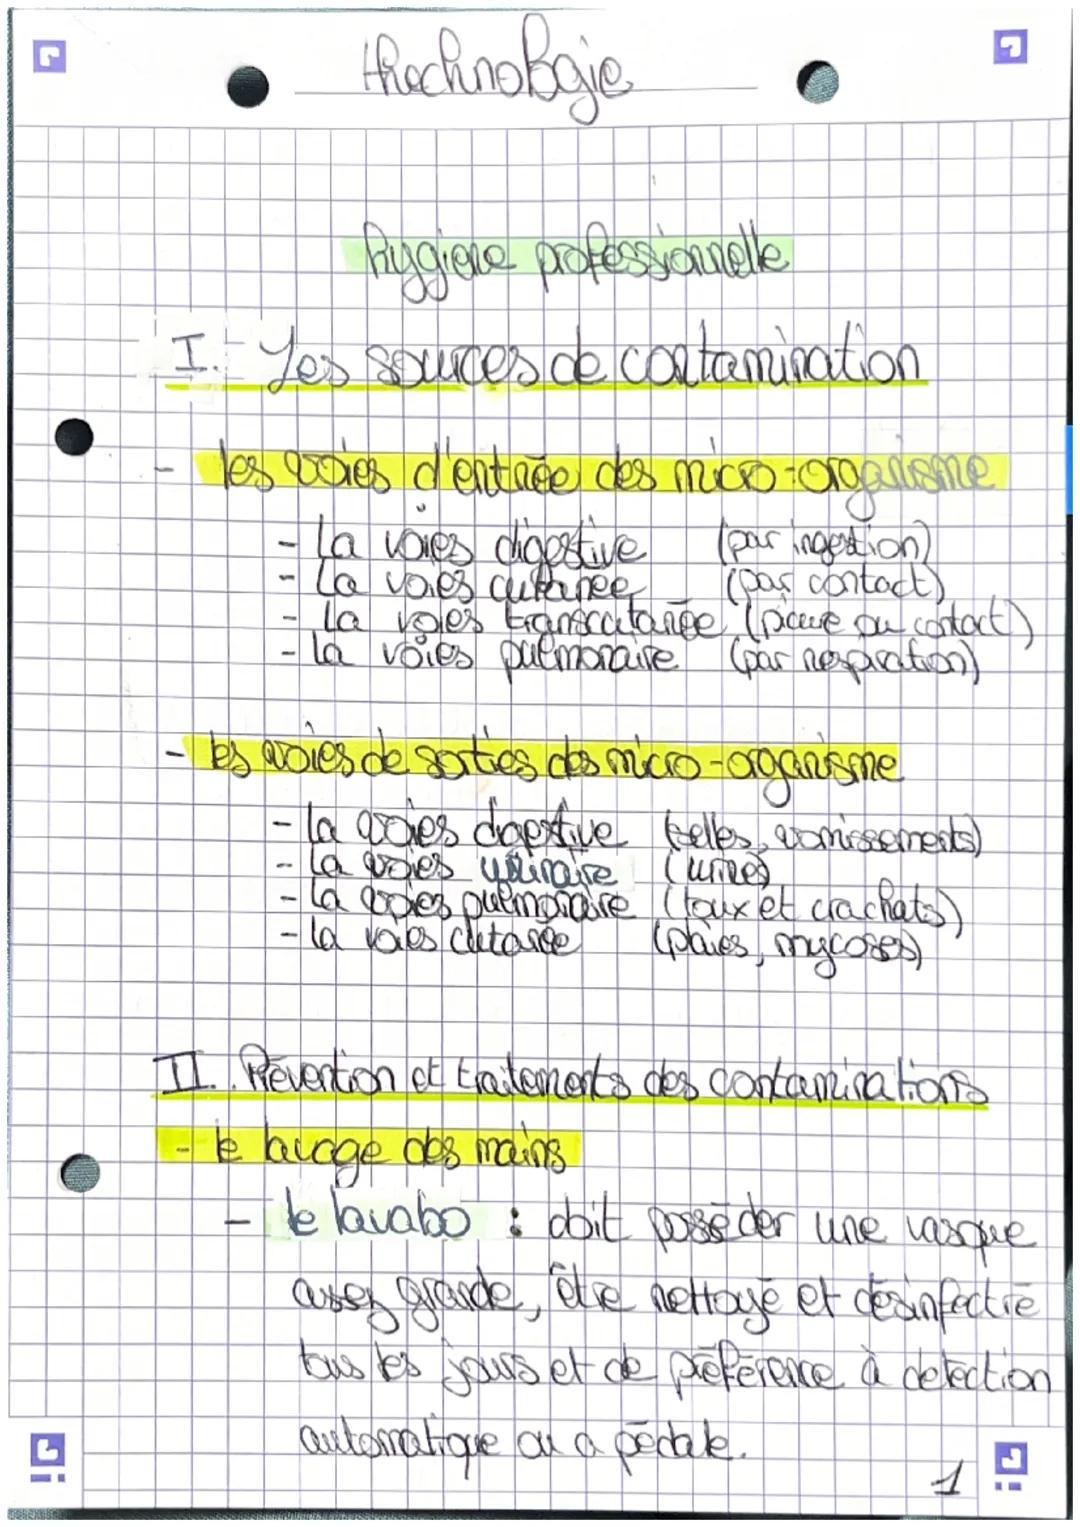 thechnologie
hygiene professionnelle
I. Les sources de contamination
- les voies d'entrée des micro-organisme
- la voies digestive (par ingestion)
- la voies cutanee (par contact)
- la voies transcutanée (picure ou contact)
- la voies pulmonaire (par respiration)
- les voies de sorties des micro-organisme
- la voies digestive (selles, vomissements)
- la voies urinaire (urines)
- la voies pulmonaire (toux et crachats)
- la voies cutanée (plaies, mycoses)
II. Prévention et traitements des contaminations
- le lavage des mains
- le lavabo : doit posséder une vasque
assez grande, être nettoyé et désinfectré
tous les jours et de préférence à detection
automatique ou a pédale.
1